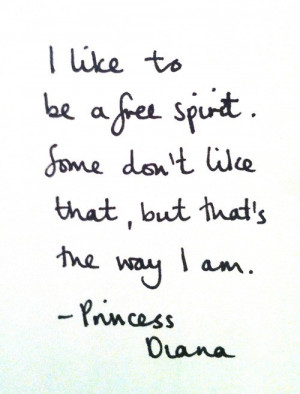 I like to
be a free spirit.
Some don't like
that, but that's
the way I am.
- Princess
Diana